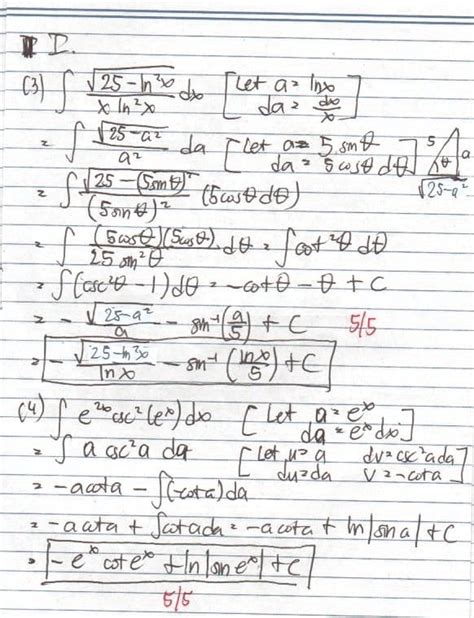 I.
(3) ∫ √(25 - ln²x) / (x ln²x) dx [Let a = lnx da = dx/x]
= ∫ √(25 - a²) / a² da [Let a = 5 sinθ da = 5cosθ dθ] 5 a θ √(25-a²)
= ∫ √(25 - (5sinθ)²) / (5sinθ)² (5cosθ dθ)
= ∫ (5cosθ)(5cosθ) / 25 sin²θ dθ = ∫ cot²θ dθ
= ∫ (csc²θ - 1) dθ = -cotθ - θ + C
= - √(25-a²) / a - sin⁻¹(a/5) + C 5/5
= - √(25-ln²x) / lnx - sin⁻¹(lnx/5) + C
(4) ∫ e²ˣ csc²(eˣ) dx [Let a = eˣ da = eˣ dx]
= ∫ a csc²a da [Let u = a dv = csc²a da du = da v = -cota]
= -acota - ∫(-cota) da
= -acota + ∫cota da = -acota + ln|sina| + C
= -eˣ cot eˣ + ln|sin eˣ| + C
5/5